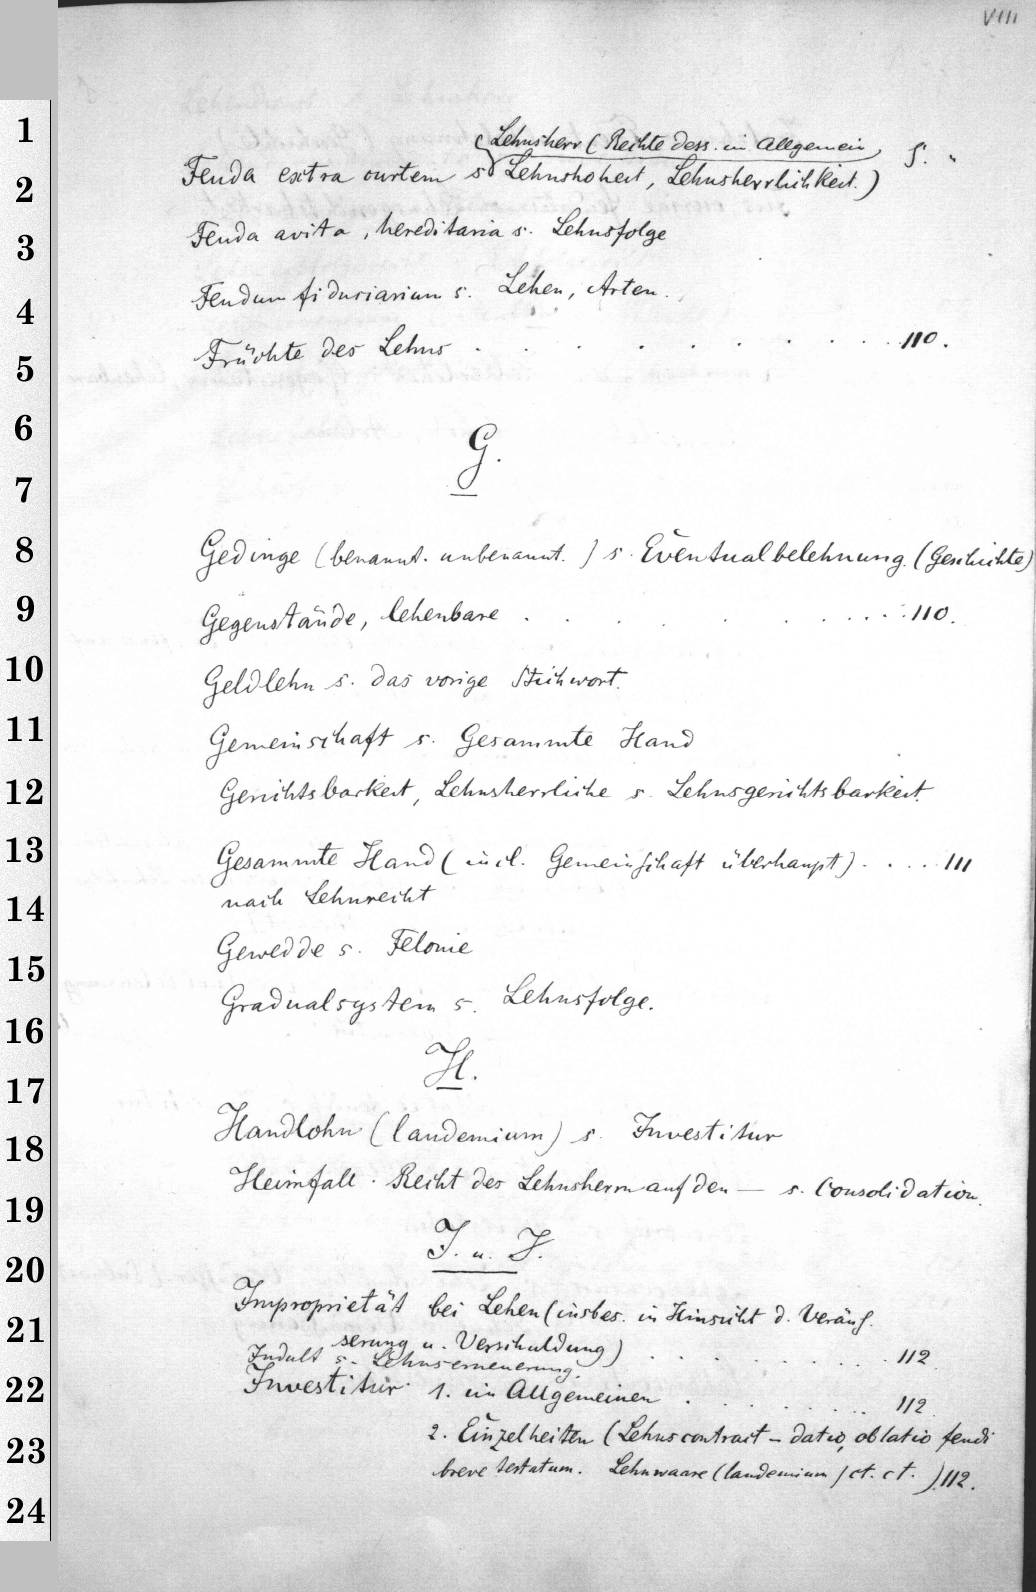 VIII
Lehnsherr (Rechte dess. im Allgemein S. "
Feuda extra curtem s. Lehnshoheit, Lehnsherrlichkeit.)
Feuda avita, hereditaria s. Lehnsfolge
Feudum fiduciarium s. Lehen, Arten.
Früchte des Lehns . . . . . . . . . . 110.
G.
Gedinge (benannt. unbenannt.) s. Eventualbelehnung. (Geschichte)
Gegenstände, lehenbare . . . . . . . . . 110.
Geldlehn s. das vorige Stichwort.
Gemeinschaft s. Gesammte Hand
Gerichtsbarkeit, Lehnsherrliche s. Lehnsgerichtsbarkeit.
Gesammte Hand (incl. Gemeinschaft überhaupt) . . . . 111
nach Lehnrecht
Gewedde s. Felonie
Gradualsystem s. Lehnsfolge.
H.
Handlohn (laudemium) s. Investitur
Heimfall. Recht des Lehnsherrn auf den — s. Consolidation.
I. u. J.
Improprietät bei Lehen (insbes. in Hinsicht d. Veräuß.
serung u. Verschuldung) . . . . . . . . 112
Indult s. Lehnserneuerung.
Investitur 1. im Allgemeinen . . . . . . . 112.
2. Einzelheiten (Lehnscontract - datio, oblatio feudi
breve testatum. Lehnwaare (laudemium) ct. ct. ) 112.
1
2
3
4
5
6
7
8
9
10
11
12
13
14
15
16
17
18
19
20
21
22
23
24